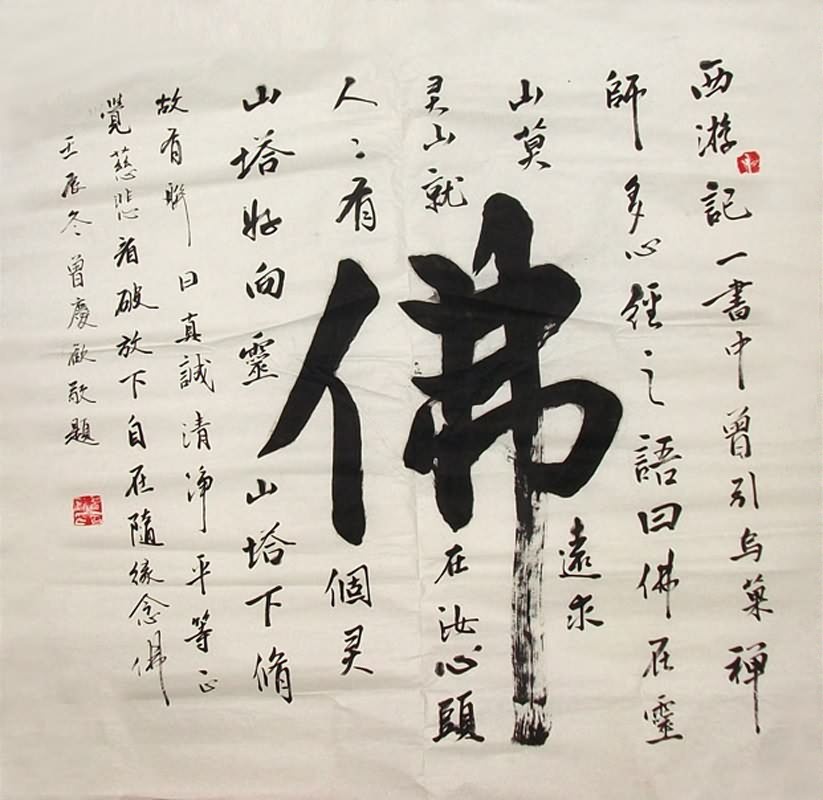 西游記一書中曾引烏巢禪
師多心經之語曰佛在靈
山莫遠求
灵山就在汝心頭
人々有個灵
山塔好向靈山塔下脩
佛
故有聯曰真誠清淨平等正
覺慈悲看破放下自在隨緣念佛
壬辰冬曾慶歡敬題